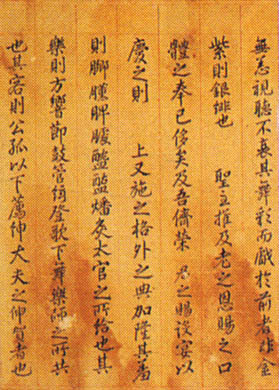 無恙視聽不衰其舞彩而戲於前者非金
紫則銀緋也 聖主推及老之恩賜之口
體之奉已侈矣及吾儕榮 君之賜設宴以
慶之則 上又施之格外之典加隆其羞
則脚臐脾臄醓醢燔炙太官之所給也其
樂則方響節鼓管絃登歌下舞樂師之所共
也其客則公孤以下薦紳大夫之伸賀者也